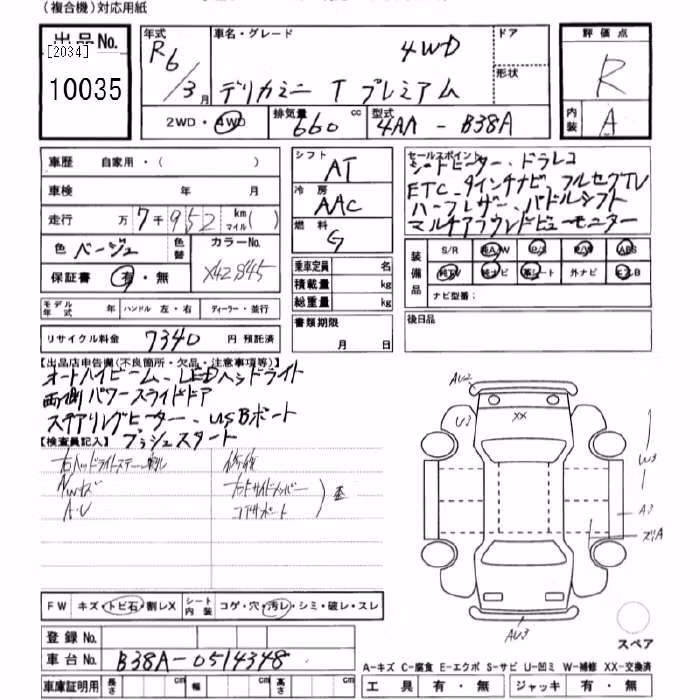 (複合機)対応用紙
出品No.
[2034]
10035
年式 R6/3月
車名・グレード 4WD
デリカミニ T プレミアム
ドア
形状
評価点
R
内装 A
2WD・4WD
排気量 660 cc
型式 4AA - B38A
車歴 自家用・( )
車検 年 月
走行 万 7千952 km マイル( )
色 ベージュ 色替 カラーNo. X42845
保証書 有・無
モデル年式 年 ハンドル 左・右 ディーラー・並行
リサイクル料金 7340 円 預託済
シフト AT
冷房 AAC
燃料 G
乗車定員 名
積載量 kg
総重量 kg
書類期限
月 日
セールスポイント
シートヒーター、ドラレコ
ETC、9インチナビ、フルセグTV
ハーフレザー、パドルシフト
マルチアラウンドビューモニター
装備品
S/R 純A/W P/S P/W ABS
純TV 純ナビ 革シート 外ナビ エアB
ナビ型番:
後日品
【出品店申告欄(不良箇所・欠品・注意事項等)】
オートハイビーム、LEDヘッドライト
両側パワースライドドア
ステアリングヒーター、USBポート
プッシュスタート
【検査員記入】
右ヘッドライトステー割レ
修復
AWキズ
A・U
コアサポート
歪
AU2
U2
XX
W3
A3
ズリA
AU3
FW キズ・トビ石・割レX
シート内装 コゲ・穴・汚レ・シミ・破レ・スレ
登録No.
車台No. B38A-0514348
車庫証明用 長さ cm 幅 cm 高さ cm
スペア
A-キズ C-腐食 E-エクボ S-サビ U-凹ミ W-補修 XX-交換済
工具 有・無 ジャッキ 有・無